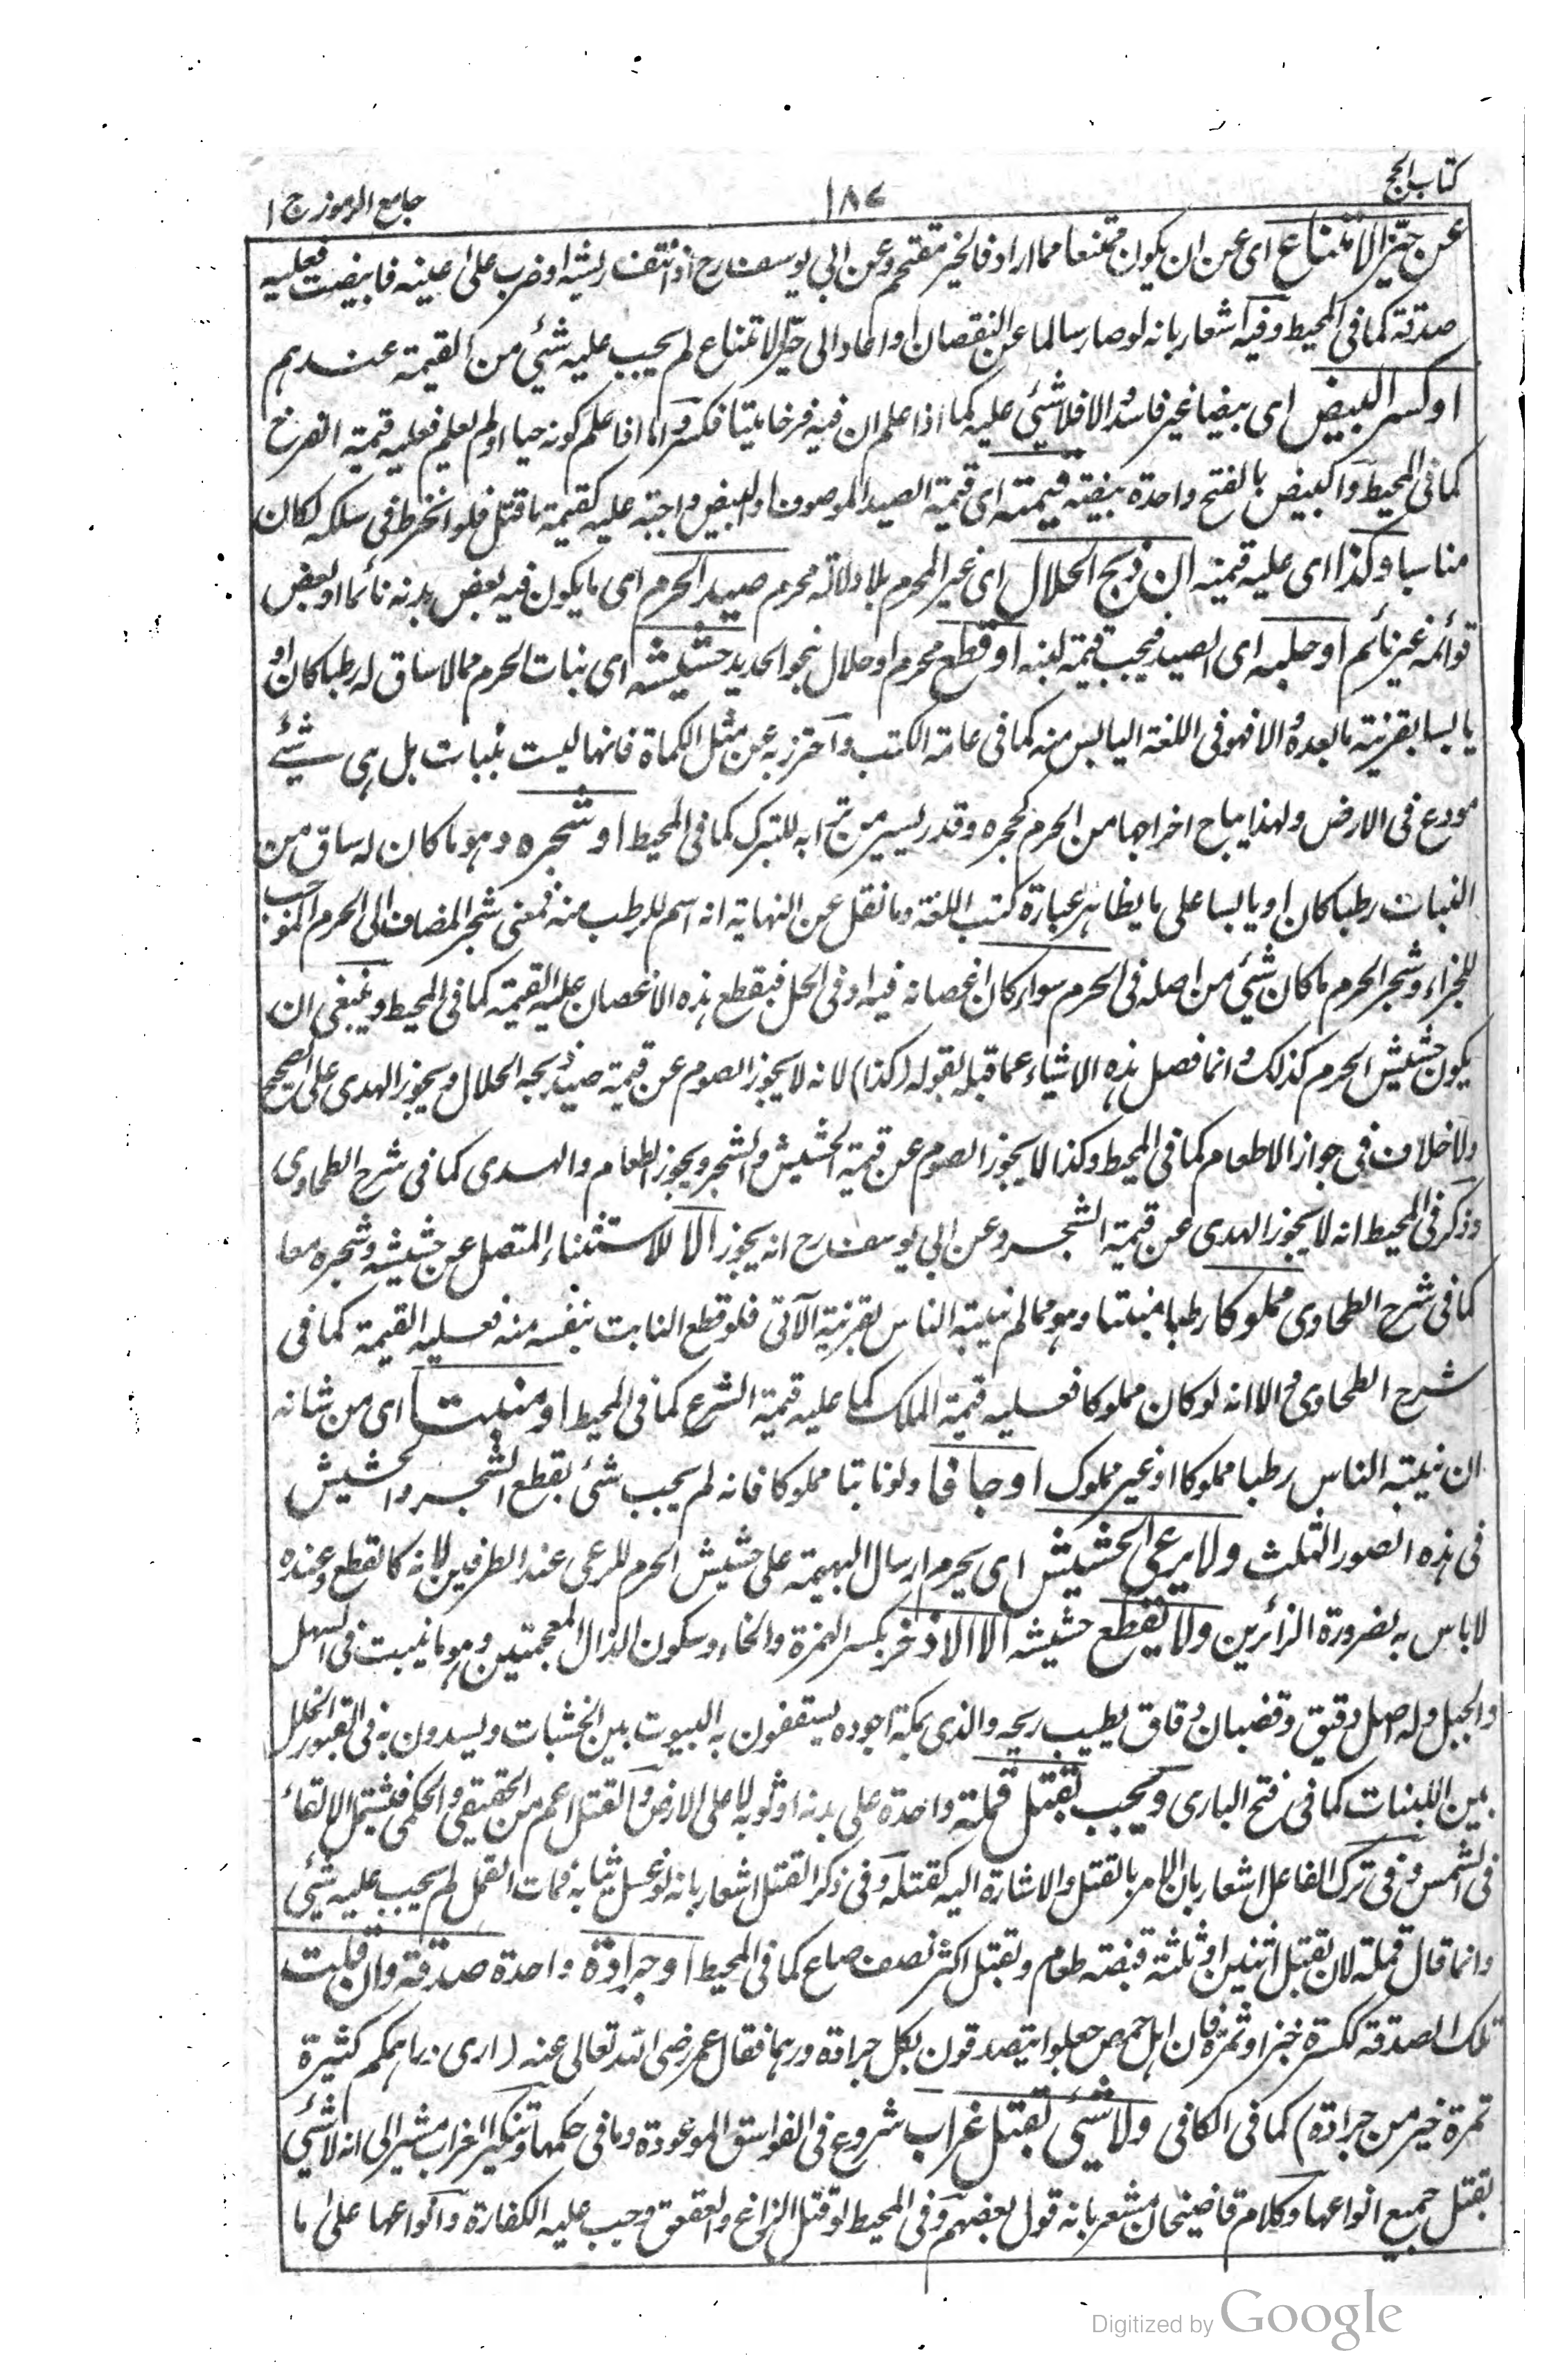 كتاب الحج
١٨٧
جامع الرموز ج ١
عن حيّز الامتناع اى عن ان يكون ممتنعا مما اراد فالخير مقتحم وعن ابي يوسف رح اذا نتف ريشه او ضرب على عينه فابيضت فعليه
صدقة كما فى المحيط وفيه اشعار بانه لو صار سالما عن النقصان او عاد الى حيّز الامتناع لم يجب عليه شئي من القيمة عندهم
او كسر البيض اى بيضا غير فاسد والا فلا شئي عليه كما اذا علم ان فيه فرخا ميتا فكسر واما اذا علم كونه حيا او لم يعلم فعليه قيمة الفرخ
كما فى المحيط والبيض بالفتح واحدة بيضة قيمته اى قيمة الصيد الموصوف او البيض واجبة عليه كقيمة ما قتل فلو انخرط فى سلكه لكان
مناسبا وكذا اى عليه قيمته ان ذبح الحلال اى غير المحرم بلا دلالة محرم صيد الحرم اى ما يكون فيه بعض بدنه نائما او بعض
قوائمه غير نائم او حلبه اى الصيد فيجب قيمة لبنه او قطع محرم او حلال بنحو الحديد حشيشه اى نبات الحرم مما لا ساق له رطبا كان او
يابسا بقرينة ما بعده والا فهو فى اللغة اليابس منه كما فى عامة الكتب واحترز به عن مثل الكماة فانها ليست بنبات بل هى شيئ
مودع فى الارض ولهذا يباح اخراجها من الحرم كحجره وقدر يسير من ترابه للتبرك كما فى المحيط او شجره وهو ما كان له ساق من
النبات رطبا كان او يابسا على ما يظاهر عبارة كتب اللغة وما نقل عن النهاية انه اسم للرطب منه فمعنى شجر المضاف الى الحرم الموجب
للجزاء وشجر الحرم ما كان شئي من اصله فى الحرم سواء كان اغصانه فيه او فى الحل فبقطع هذه الاغصان عليه القيمة كما فى المحيط وينبغى ان
يكون حشيش الحرم كذلك وانما فصل هذه الاشياء عما قبله بقوله (كذا) لانه لا يجوز الصوم عن قيمة صيد ذبحه الحلال ويجوز الهدى على الصحيح
ولا خلاف فى جواز الاطعام كما فى المحيط وكذا لا يجوز الصوم عن قيمة الحشيش والشجر ويجوز الطعام والهدى كما فى شرح الطحاوى
وذكر فى المحيط انه لا يجوز الهدى عن قيمة الشجر وعن ابي يوسف رح انه يجوز الا للاستثناء المتصل عن حشيشه وشجره معا
كما فى شرح الطحاوى مملوكا رطبا منبتا وهو مما لم ينبته الناس بقرينة الآتى فلو قطع النابت بنفسه منه فعليه القيمة كما فى
شرح الطحاوى الا انه لو كان مملوكا فعليه قيمة الملك كما عليه قيمة الشرع كما فى المحيط او منبتا اى من شانه
ان ينبته الناس رطبا مملوكا او غير مملوك او جافا ولو نابتا مملوكا فانه لم يجب شئ بقطع الشجر والحشيش
فى هذه الصور الثلث ولا يرعى الحشيش اى يحرم ارسال البهيمة على حشيش الحرم للرعى عند الطرفين لانه كالقطع وعنده
لا باس به لضرورة الزائرين ولا يقطع حشيشه الا الاذخر بكسر الهمزة والخاء وسكون الذال المعجمتين وهو ما ينبت فى السهل
والجبل وله اصل دقيق وقضبان دقاق يطيب ريحه والذى بمكة اجوده يسقفون به البيوت بين الخشبات ويسدون به فى القبور الخلل
بين اللبنات كما فى فتح البارى ويجب بقتل قملة واحدة على بدنه او ثوبه لا على الارض والقتل اعم من الحقيقى والحكمى فيشتمل الالقاء
فى الشمس وفى ترك الفاعل اشعار بان الامر بالقتل والاشارة اليه كقتله وفى ذكر القتل اشعار بانه لو غسل ثيابه فمات القمل لم يجب عليه شئي
وانما قال قملة لان بقتل اثنين او ثلثة قبضة طعام وبقتل اكثر نصف صاع كما فى المحيط او جرادة واحدة صدقة وان قلت
تلك الصدقة ككسرة خبز او تمرة فان اهل حمص جعلوا يتصدقون بكل جرادة درهما فقال عمر رضى الله تعالى عنه (ارى دراهمكم كثيرة
تمرة خير من جرادة) كما فى الكافى ولا شئى بقتل غراب شروع فى الفواسق الموعودة وما فى حكمها وتنكير الغراب مشير الى انه لا شئي
بقتل جميع انواعها وكلام قاضيخان مشعر بانه قول بعضهم وفى المحيط لو قتل الزاغ والعقعق وجب عليه الكفارة وانواعها على ما
Digitized by Google